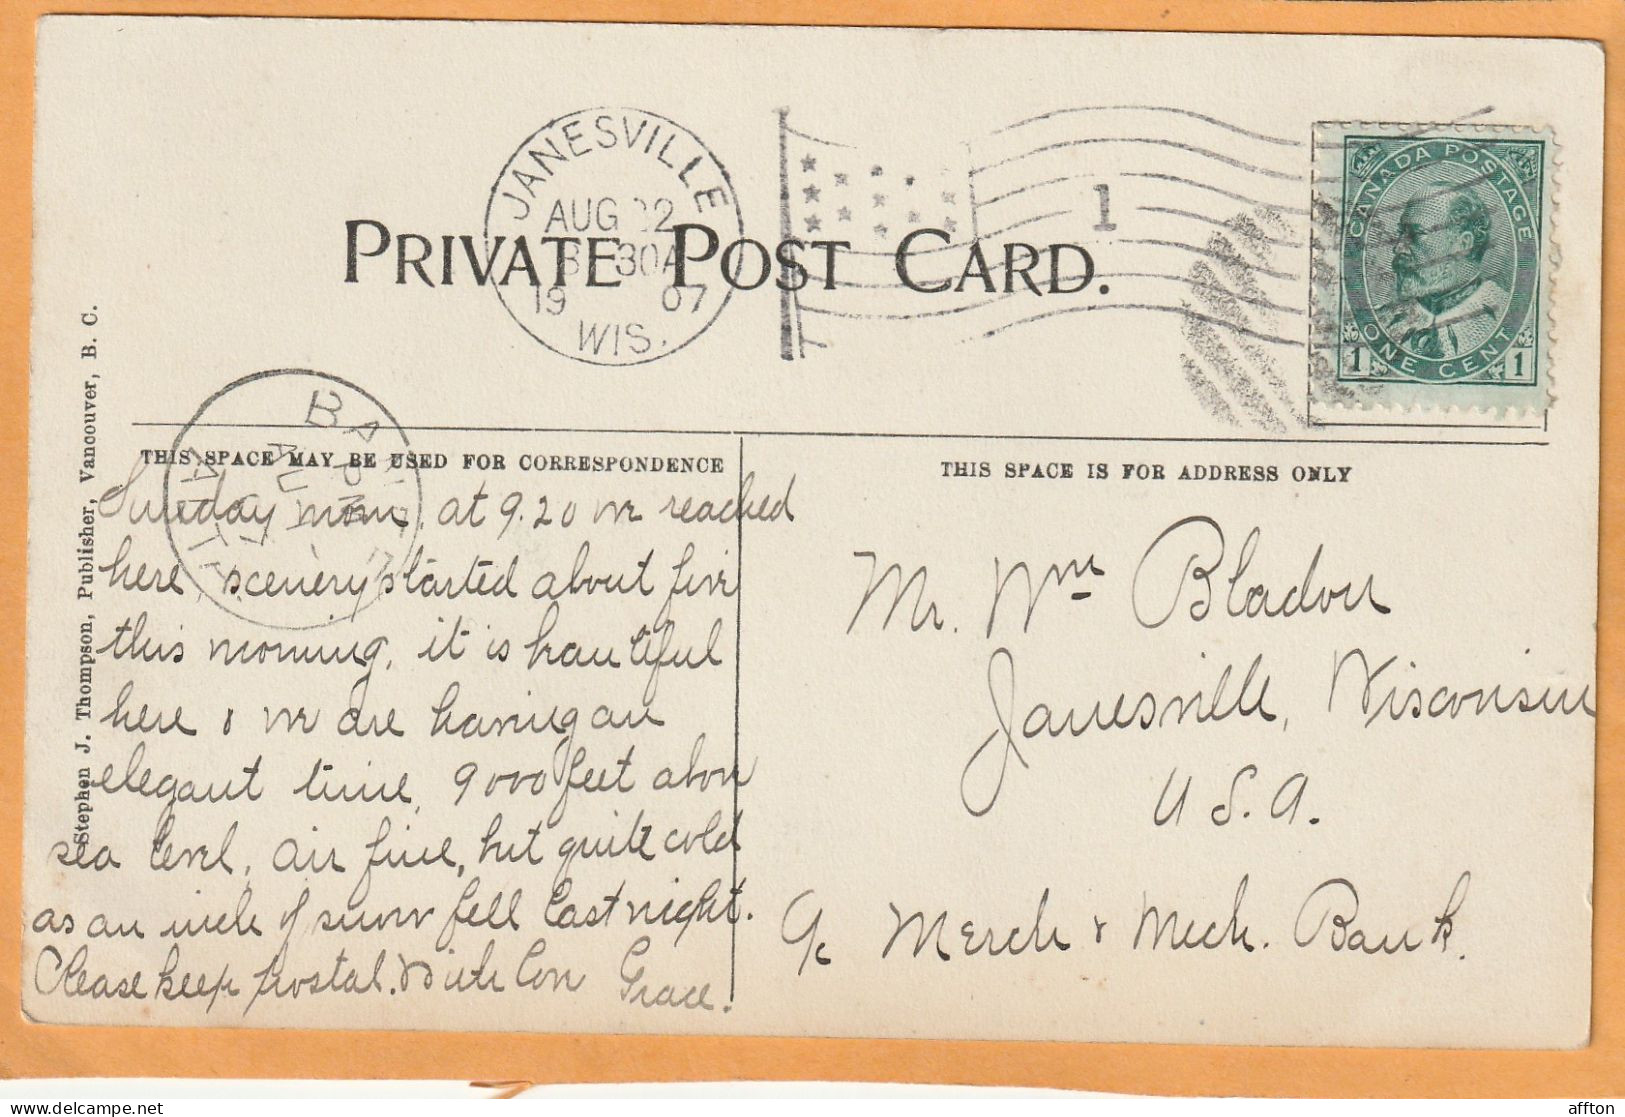 JANESVILLE
AUG 22
30A
19 07
WIS.
1
CANADA POSTAGE
ONE CENT
1 1
PRIVATE POST CARD.
Stephen J. Thompson, Publisher, Vancouver, B. C.
THIS SPACE MAY BE USED FOR CORRESPONDENCE
THIS SPACE IS FOR ADDRESS ONLY
Sunday morn. at 9.20 we reached
here, scenery started about five
this morning, it is beautiful
here & we are having an
elegant time, 9000 feet above
sea level, air fine, but quite cold
as an inch of snow fell last night.
Please keep postal. With love Grace.
Mr. Wm Bladon
Janesville, Wisconsin
U.S.A.
c/o Merch & Mech. Bank.
affton